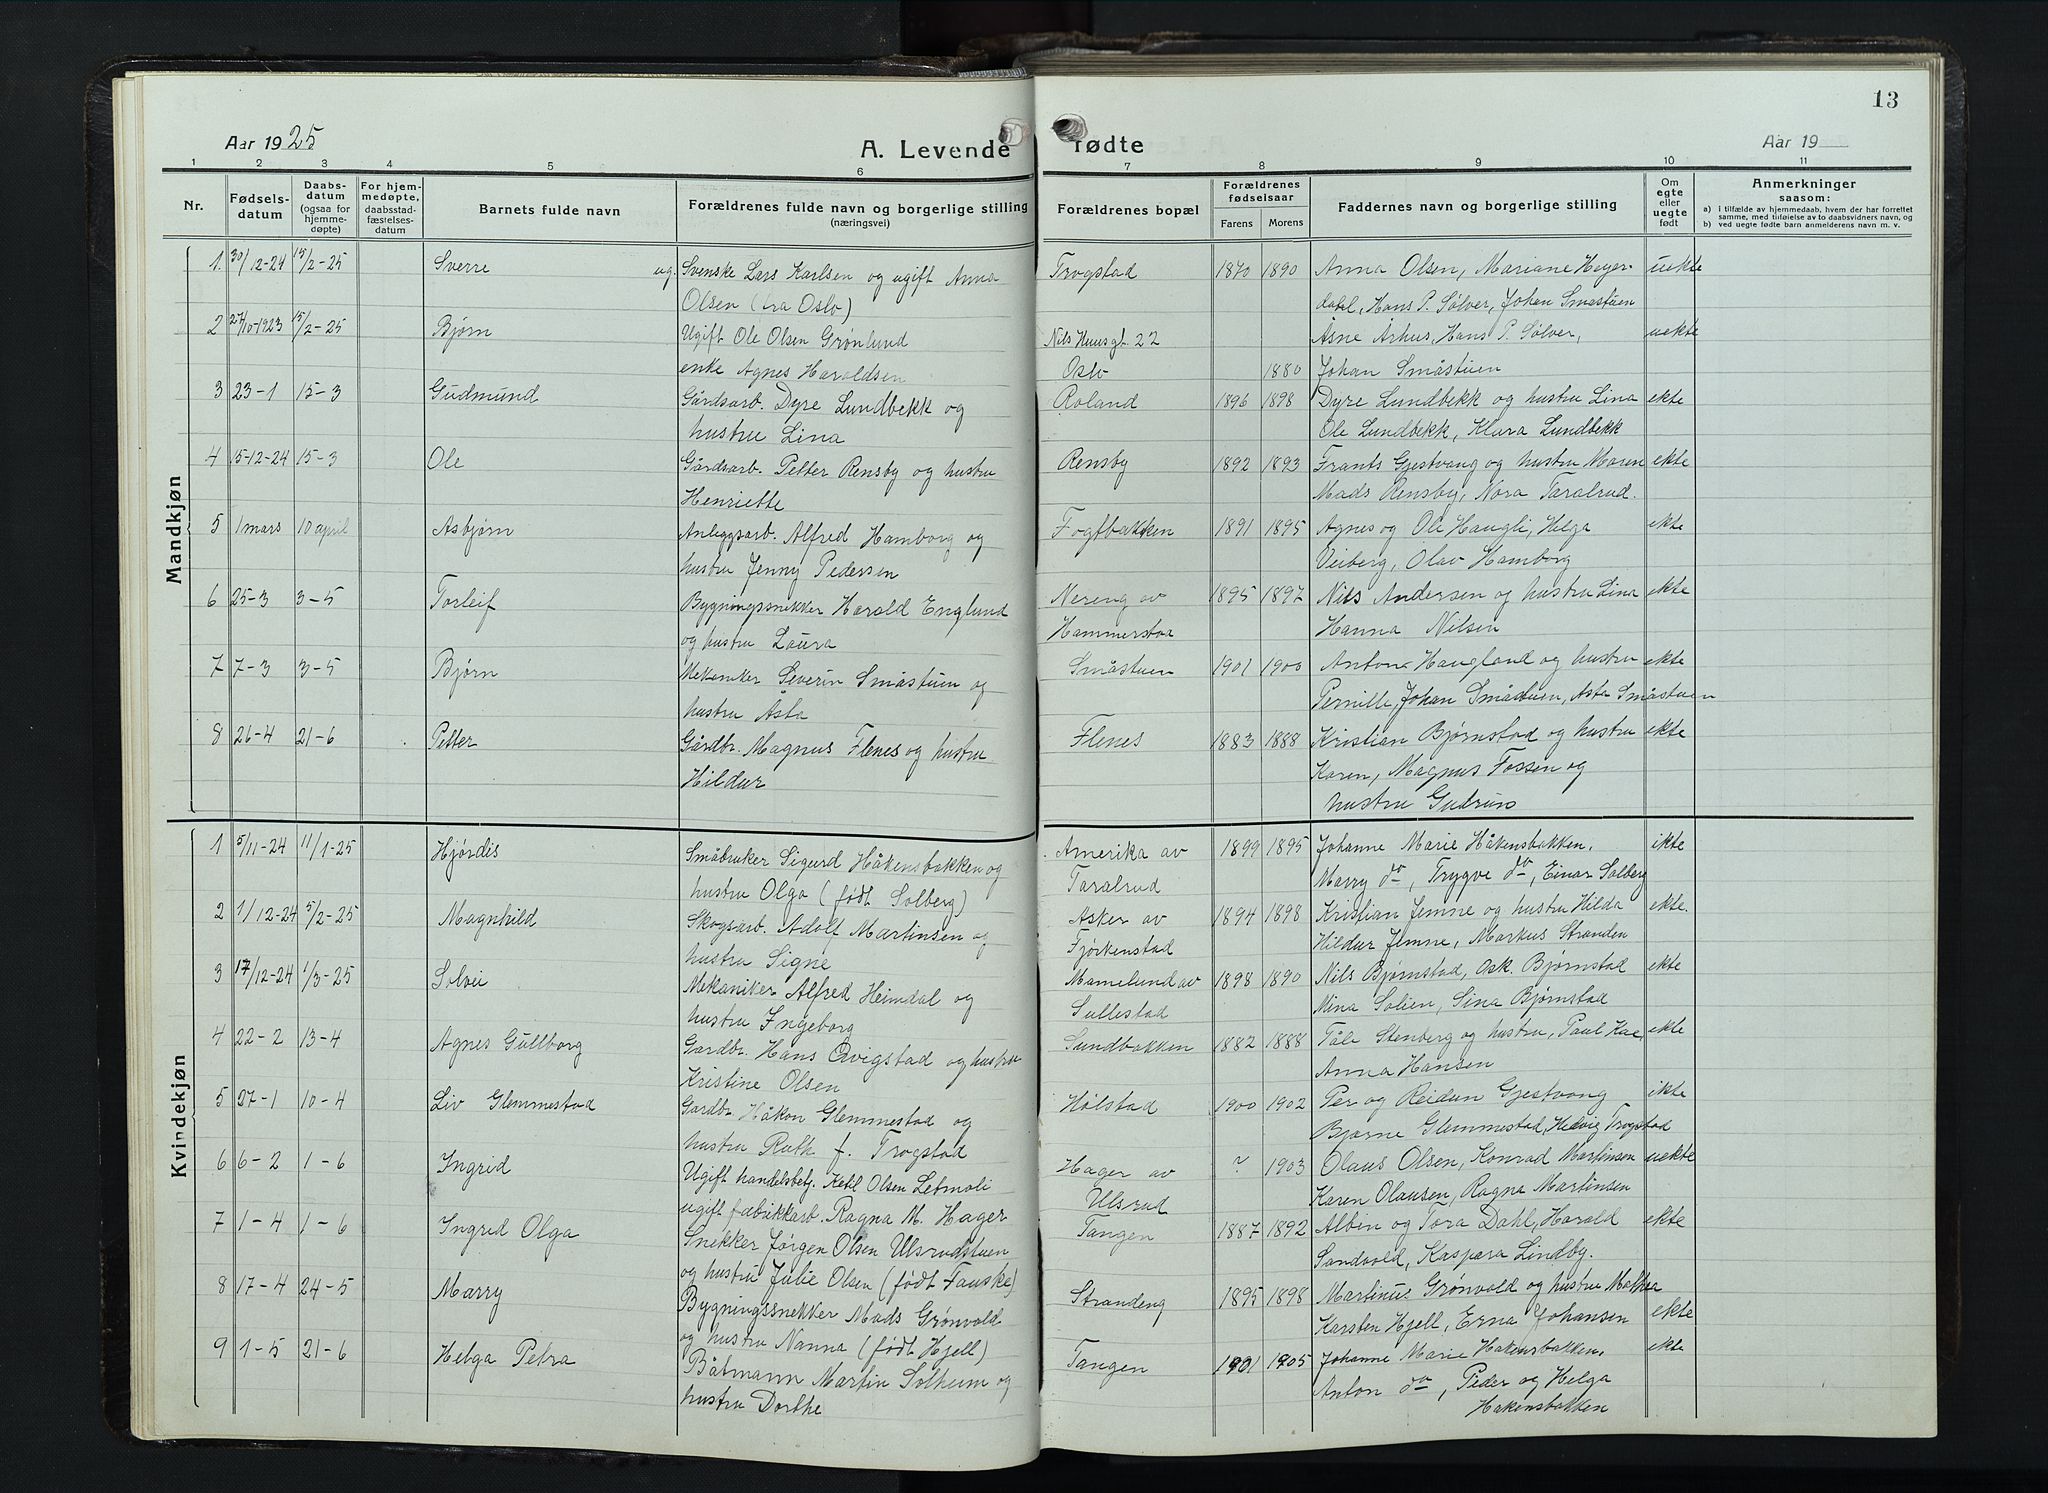 13
Aar 1925 A. Levende fødte Aar 19
1 2 3 4 5 6 7 8 9 10 11
Nr. Fødselsdatum Daabsdatum (ogsaa for hjemmedøpte) For hjemmedøpte, daabsstadfæstelsesdatum Barnets fulde navn Forældrenes fulde navn og borgerlige stilling (næringsvei) Forældrenes bopæl Forældrenes fødselsaar Farens Morens Faddernes navn og borgerlige stilling Om egte eller uegte født Anmerkninger saasom:
a) i tilfælde av hjemmedaab, hvem der har forrettet samme, med tilføielse av to daabsvidners navn, og
b) ved uegte fødte barn anmelderens navn m. v.
Mandkjøn
1. 30/12-24 15/2-25 Sverre ug. Svenske Lars Karlsen og ugift Anna Trogstad 1870 1890 Anna Olsen, Mariane Heyer- uekte
Olsen (fra Oslo) dahl, Hans P. Sølver, Johan Småstuen
2 27/10-1923 15/2-25 Bjørn Ugift Ole Olsen Grønlund Nils Huusgt. 22 Åsne Århus, Hans P. Sølver, uekte
enke Agnes Haraldsen Oslo 1880 Johan Småstuen
3 23-1 15-3 Gudmund Gårdsarb. Dyre Lundbekk og Roland 1896 1898 Dyre Lundbekk og hustru Lina ekte
hustru Lina Ole Lundbekk, Klara Lundbekk
4 15-12-24 15-3 Ole Gårdsarb. Petter Rensby og hustru Rensby 1892 1893 Frants Gjestvang og hustru Maren ekte
Henriette Mads Rensby, Nora Taralrud.
5 1 mars 10 april Asbjørn Anleggsarb. Alfred Hamborg og Fogtbakken 1891 1895 Agnes og Ole Haugli, Helga ekte
hustru Jenny Pedersen Veiberg, Olav Hamborg
6 25-3 3-5 Torleif Bygningssnekker Harald Englund Nereng av 1895 1897 Nils Andersen og hustru Lina ekte
og hustru Laura Hammerstad Hanna Nilsen
7 7-3 3-5 Bjørn Mekaniker Severin Småstuen og Småstuen 1901 1900 Anton Haugland og hustru ekte
hustru Åsta Pernille, Johan Småstuen, Asta Småstuen
8 26-4 21-6 Petter Gårdbr. Magnus Flenes og hustru Flenes 1883 1888 Kristian Bjørnstad og hustru ekte
Hildur Karen, Magnus Fossen og
hustru Gudrun
Kvindekjøn
1 5/11-24 11/1-25 Hjørdis Småbruker Sigurd Håkensbakken og Amerika av 1899 1895 Johanne Marie Håkensbakken, ikte
hustru Olga (født Solberg) Taralrud Marry do, Trygve do, Einar Solberg
2 1/12-24 5/2-25 Magnhild Skogsarb. Adolf Martinsen og Asker av 1894 1898 Kristian Jemne og hustru Hilda ekte.
hustru Signe Fjørkenstad Hildur Jemne, Markus Stranden
3 17/12-24 1/3-25 Solvei Mekaniker Alfred Heimdal og Mamelund av 1898 1890 Nils Bjørnstad, Osk. Bjørnstad ekte
hustru Ingeborg Sullestad Nina Solien, Sina Bjørnstad
4 22-2 13-4 Agnes Gullborg Gardbr. Hans Qvigstad og hustru Sundbakken 1882 1888 Tåle Stenberg og hustru, Paul ekte
Kristine Olsen Anna Hansen
5 27-1 10-4 Liv Glemmestad Gardbr. Håkon Glemmestad og Holstad 1900 1902 Per og Reidun Gjestvang ikte
hustru Ruth f. Trogstad Bjarne Glemmestad, Hedvig Trogstad
6 6-2 1-6 Ingrid Ugift handelsbetj. Ketil Olsen Letmoli Hager av ? 1903 Olaus Olsen, Konrad Martinsen uekte
ugift fabrikkarb. Ragna M. Hager Ulsrud Karen Olausen, Ragna Martinsen
7 1-4 1-6 Ingrid Olga Snekker Jørgen Olsen Ulsrudstuen Tangen 1887 1892 Albin og Tora Dahl, Harald ekte
og hustru Julie Olsen (født Fauske) Sandvold, Kaspara Lindby.
8 17-4 24-5 Marry Bygningssnekker Mads Grønvold Strandeng 1895 1898 Martinus Grønvold og hustru Mathea
og hustru Nanna (født Hjell) Karsten Hjell, Erna Johansen ekte
9 1-5 21-6 Helga Petra Båtmann Martin Solheim og Tangen 1901 1905 Johanne Marie Hakensbakken, ekte
hustru Dorthe Anton do, Peder og Helga
Hakensbakken